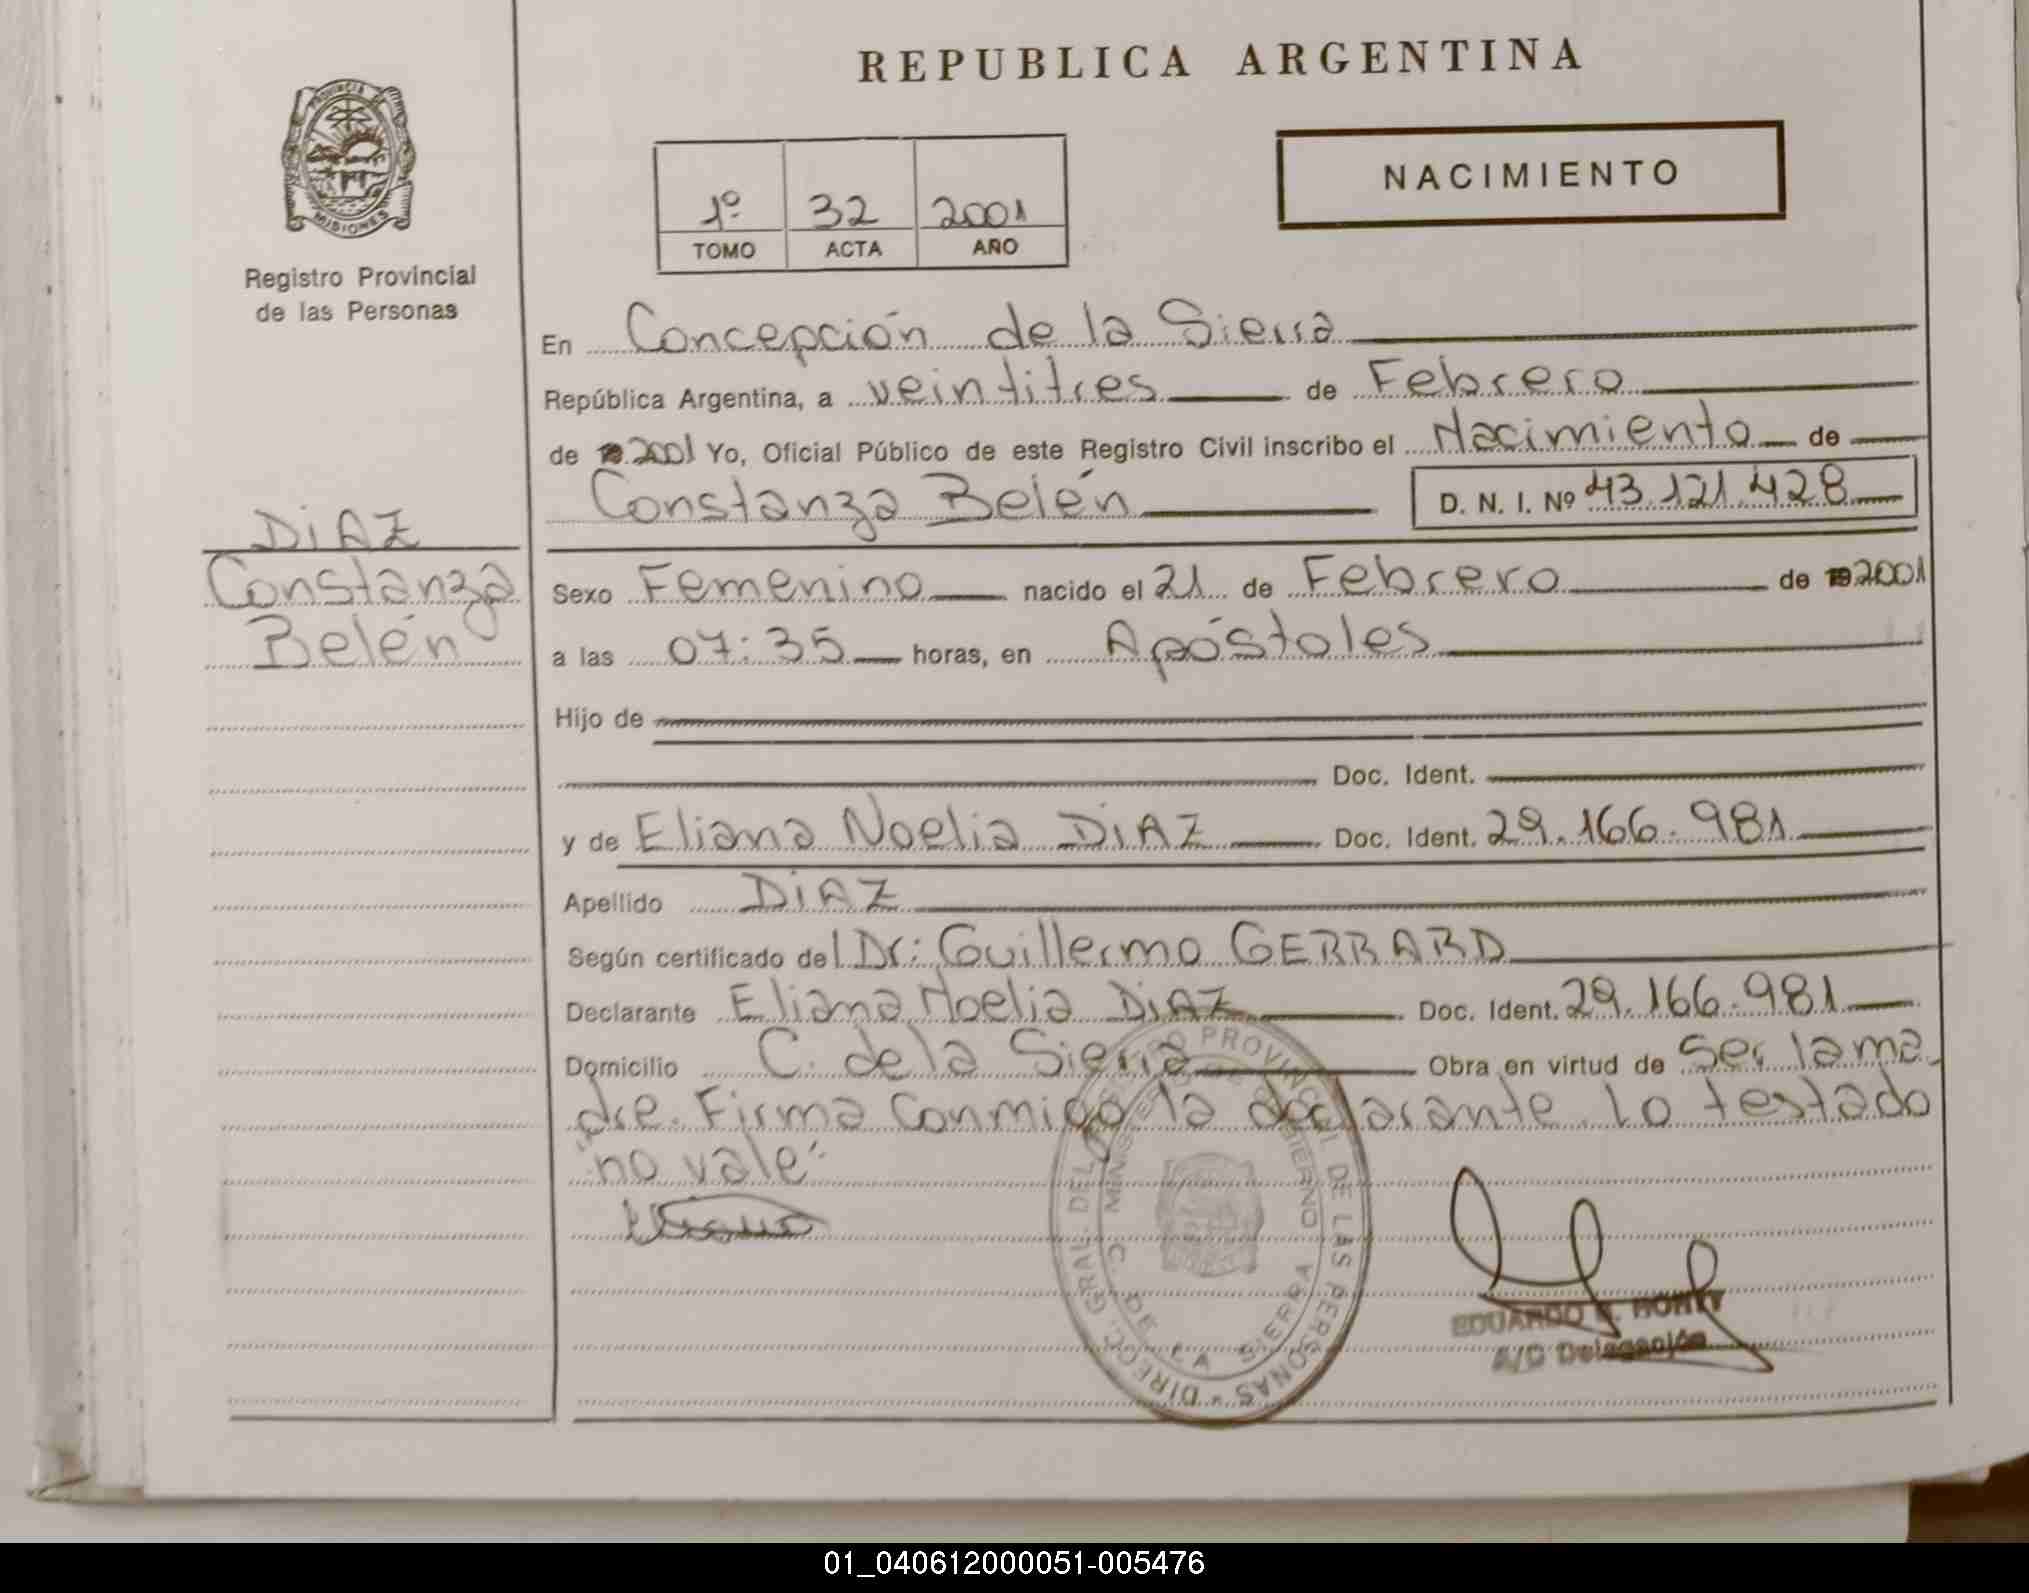 REPUBLICA ARGENTINA
PROVINCIA DE
MISIONES
Registro Provincial
de las Personas
1º 32 2001
TOMO ACTA AÑO
NACIMIENTO
En Concepción de la Sierra
República Argentina, a veintitres de Febrero
de 2001 Yo, Oficial Público de este Registro Civil inscribo el Nacimiento de
Constanza Belén D. N. I. Nº 43.121.428
DiAZ
Constanza
Belén
Sexo Femenino nacido el 21 de Febrero de 2001
a las 07:35 horas, en Apóstoles
Hijo de
Doc. Ident.
y de Eliana Noelia DiAZ Doc. Ident. 29.166.981
Apellido DiAZ
Según certificado del Dr: Guillermo GERRARD
Declarante Eliana Noelia DiAZ Doc. Ident. 29.166.981
Domicilio C. de la Sierra Obra en virtud de ser la ma
dre. Firma conmigo la declarante. lo testado
"no vale"
DIREC. GRAL. DEL REGISTRO PROVINCIAL DE LAS PERSONAS
MINISTERIO DE GOBIERNO
C. DE LA SIERRA
EDUARDO
A/C Delegación
01_040612000051-005476